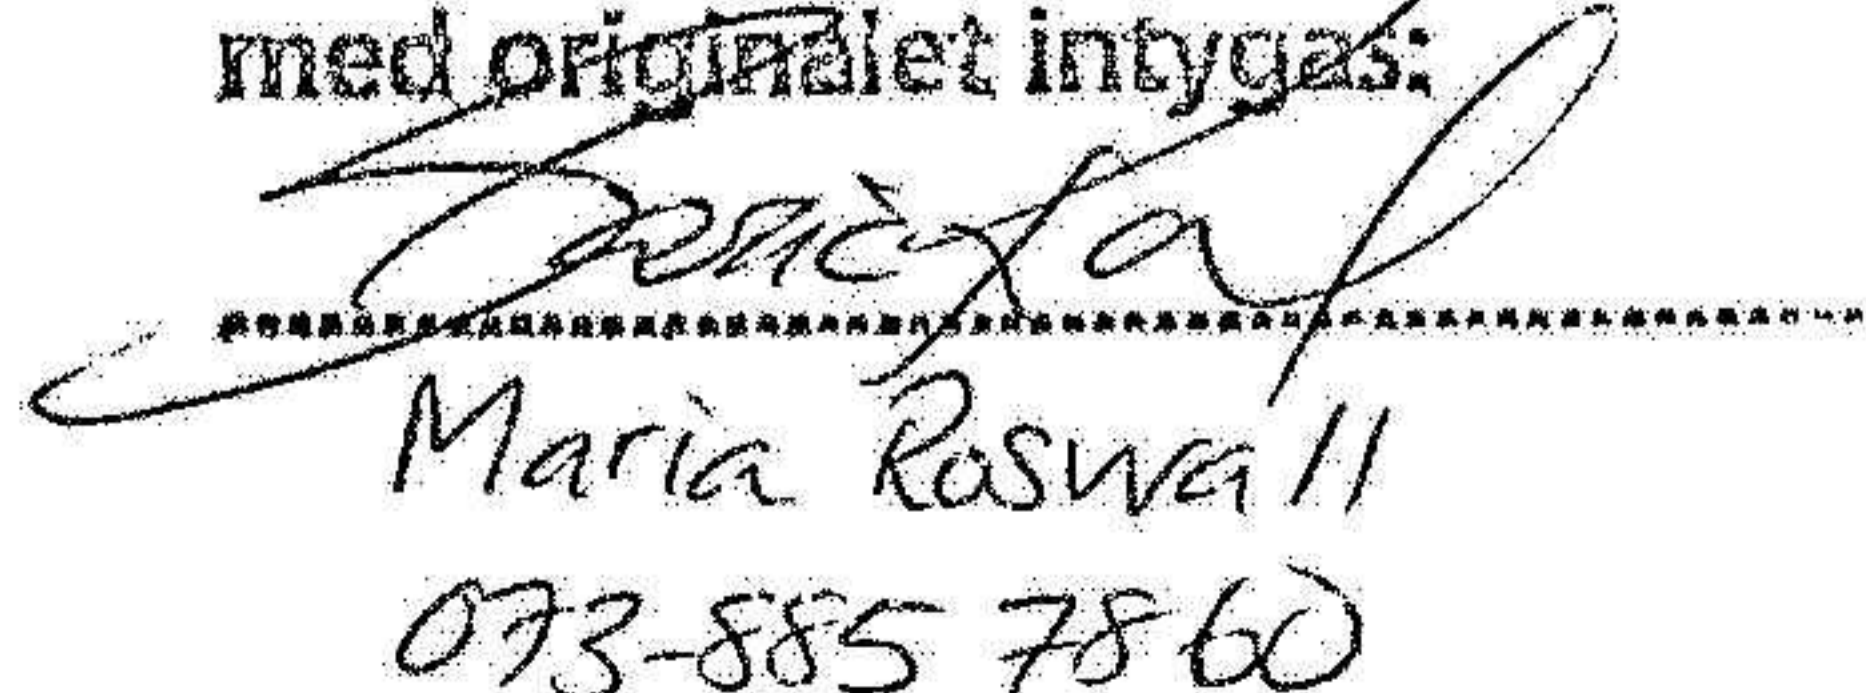 med originalet intygas:
Maria Roswall
073-885 78 60